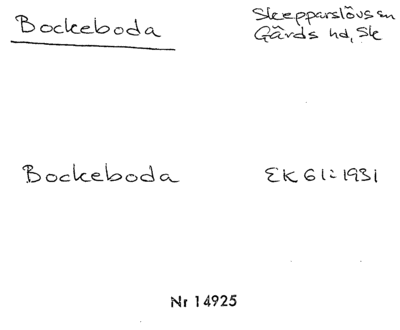 Bockeboda
Skepparslövs sn
Gärds hd, Sk
Bockeboda
EK 61:1931
Nr 14925